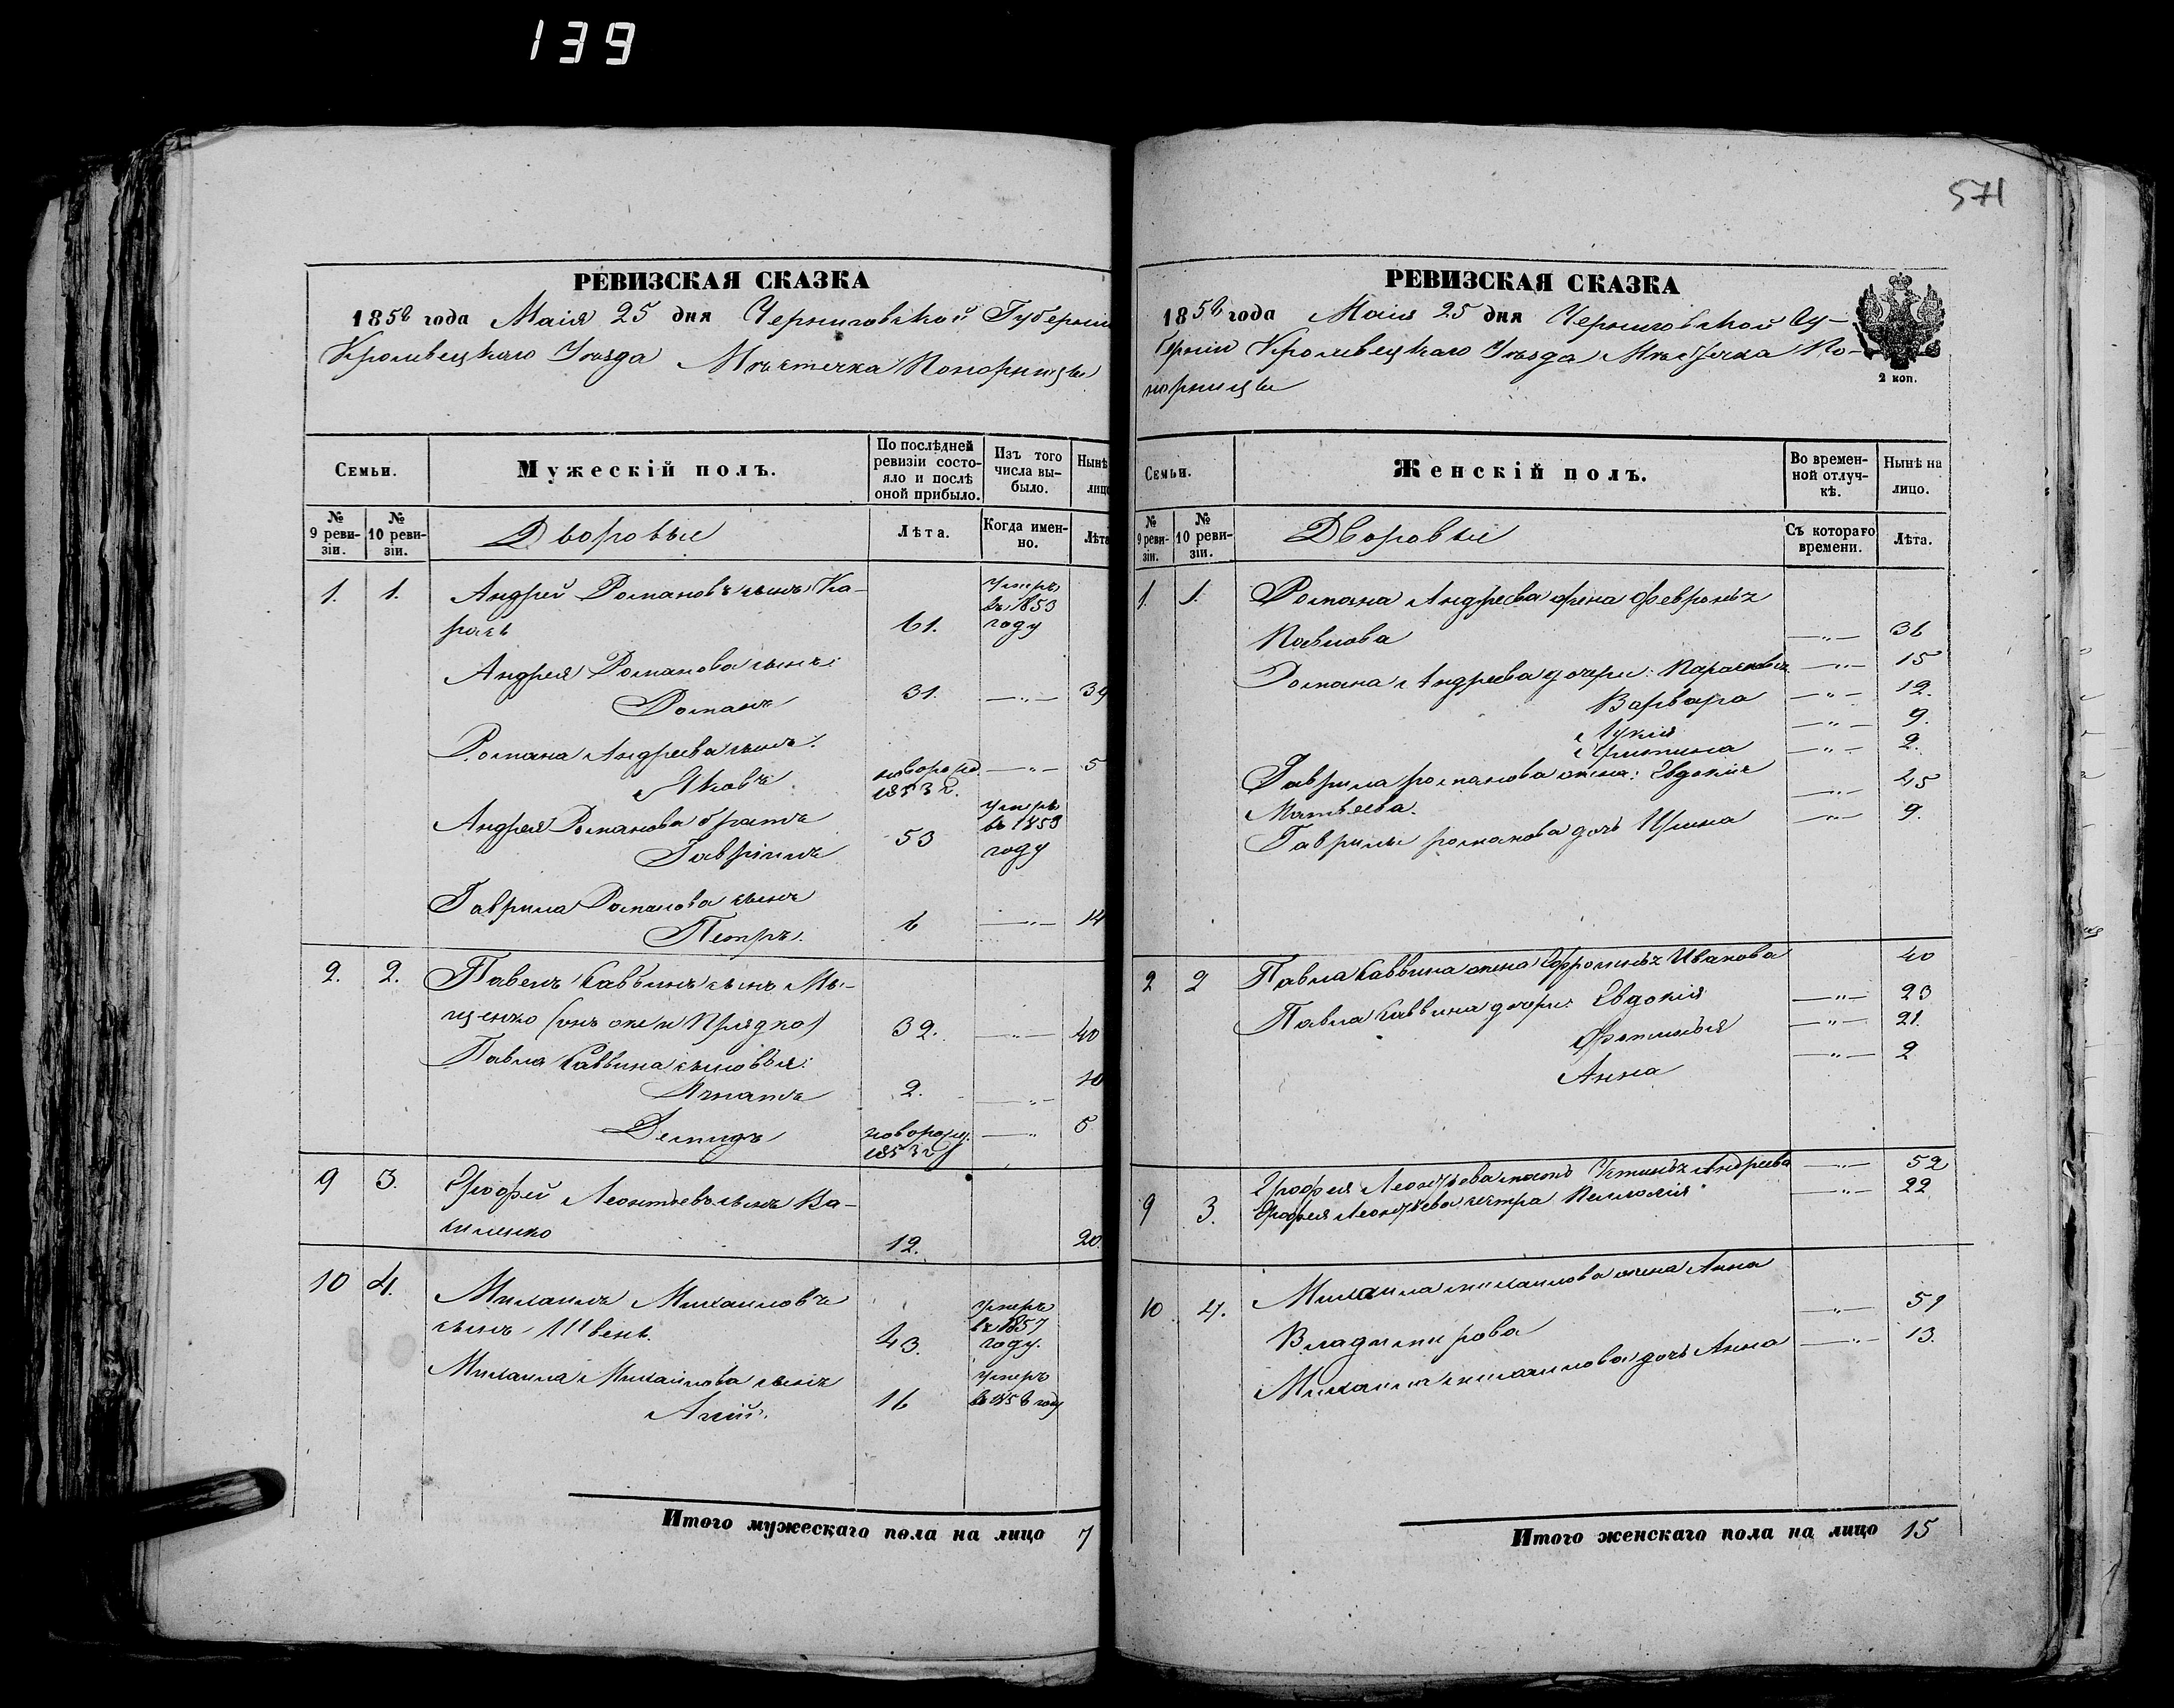 139
571
РЕВИЗСКАЯ СКАЗКА
1858 года Маія 25 дня Черниговской Губерніи
Кролевецкаго Уѣзда Мѣстечка Понорницы
Семьи.
Мужескій полъ.
По послѣдней ревизіи состояло и послѣ оной прибыло.
Изъ того числа выбыло.
Нынѣ лицо
№ 9 ревизіи.
№ 10 ревизіи.
Дворовые
Лѣта.
Когда именно.
Лѣта
1. 1. Андрей Романовъ сынъ Ка-
рась 61. умеръ въ 1853 году
Андрея Романова сынъ:
Романъ 31. —"— 39
Романа Андреева сынъ:
Яковъ новорожд. 1853 г. —"— 5
Андрея Романова братъ
Гавріилъ 53 умеръ въ 1853 году
Гаврила Романова сынъ
Петръ. 6 —"— 14
2. 2. Павелъ Саввинъ сынъ Мы-
щенко (онъ же и Прядко) 32. —"— 40
Павла Саввина сыновья:
Игнатъ 2. —"— 10
Демидъ новорожд. 1853 г. —"— 5
9 3. Ерофей Леонтьевъ сынъ Ва-
силенко 12. 20.
10 4. Михаилъ Михаиловъ
сынъ Швецъ 43. умеръ въ 1857 году.
Михаила Михаилова сынъ
16 умеръ въ 1856 году
Итого мужескаго пола на лицо 7
РЕВИЗСКАЯ СКАЗКА
1858 года Маія 25 дня Черниговской Гу-
берніи Кролевецкаго Уѣзда Мѣстечка По-
норницы
2 коп.
Семьи.
Женскій полъ.
Во временной отлучкѣ.
Нынѣ на лицо.
№ 9 ревизіи.
№ 10 ревизіи.
Дворовые
Съ котораго времени.
Лѣта.
1. 1. Романа Андреева жена Февронія
Павлова —"— 36
Романа Андреева дочери: Парасковія —"— 15
Варвара —"— 12.
Лукія —"— 9.
Христина —"— 2.
Гаврила романова жена: Евдокія
Матвѣева. —"— 45
Гаврилы романова дочь Ирина —"— 9.
2 2 Павла Саввина жена Ефросинія Иванова 40
Павла Саввина дочери: Евдокія —"— 23
—"— 21.
Анна —"— 2
9 3. Ерофея Леонтьева мать Устинія Андреева —"— 52
Ерофея Леонтьева сестра Пелагія —"— 22
10 4. Михаила михаилова жена Анна
Владимирова —"— 51
Михаила михаилова дочь Анна —"— 13.
Итого женскаго пола на лицо 15